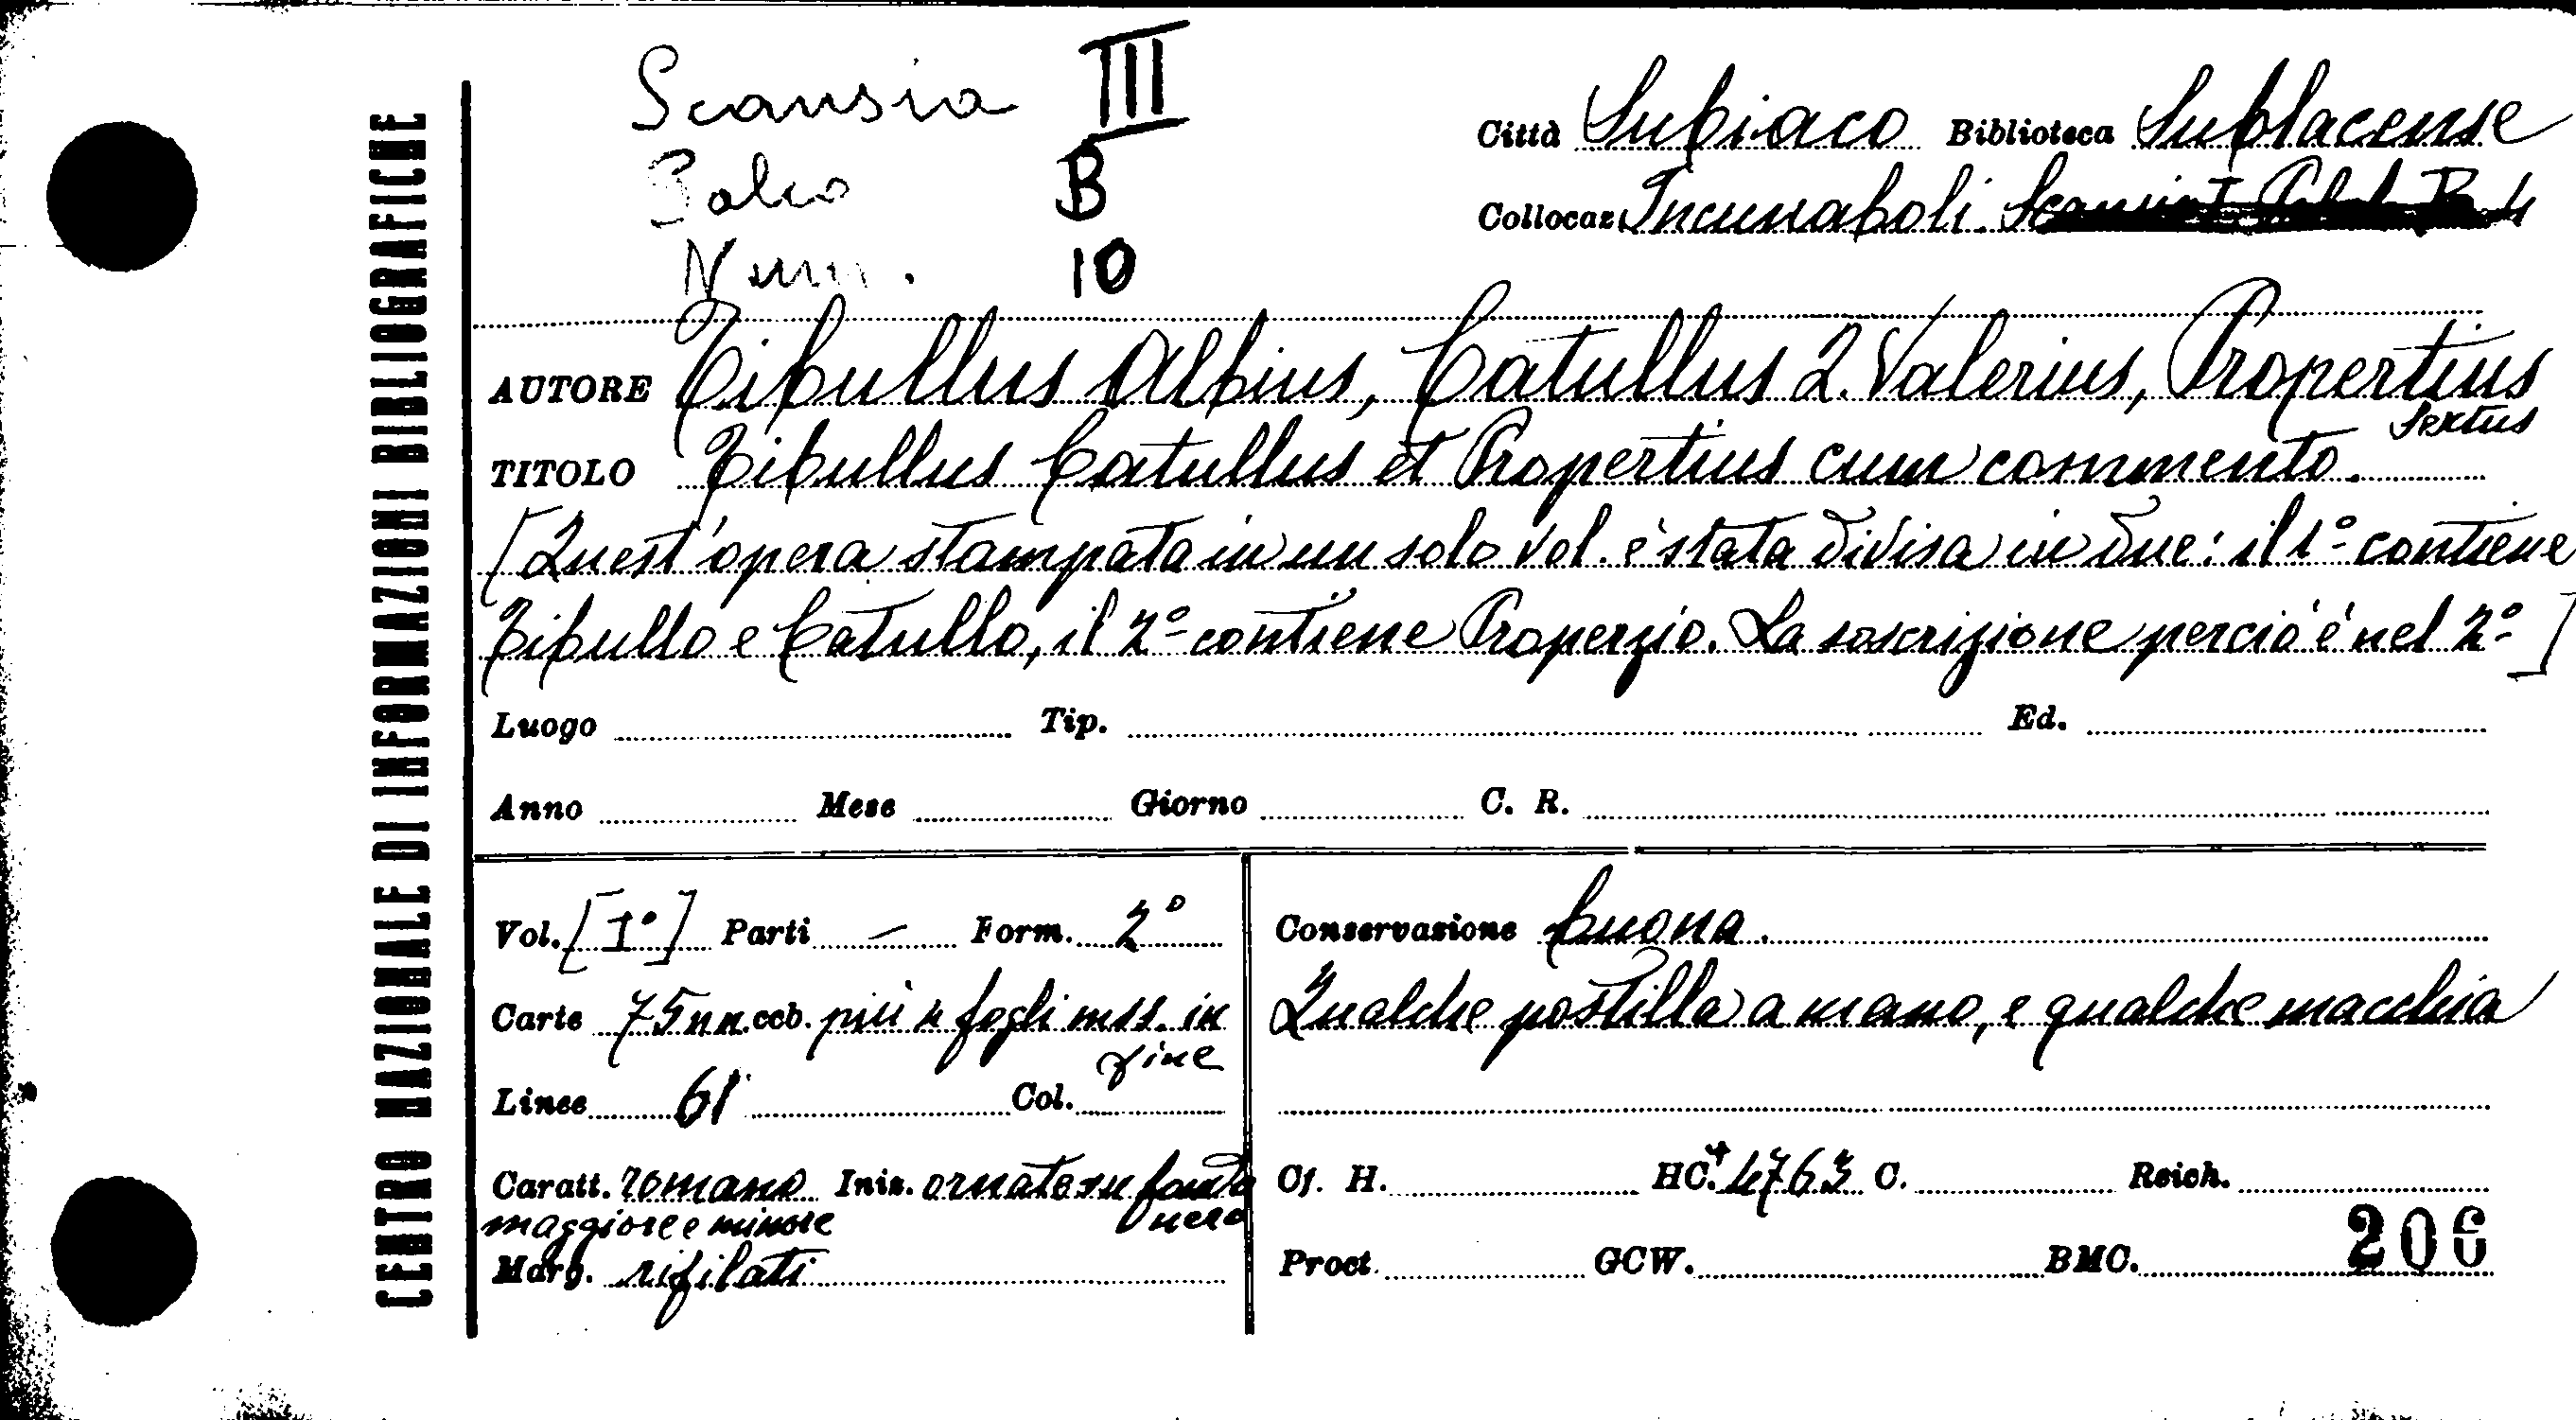 CENTRO NAZIONALE DI INFORMAZIONI BIBLIOGRAFICHE
Scansia III
Palco B
Num. 10
Città Subiaco Biblioteca Sublacense
Collocaz. Incunaboli.
AUTORE Tibullus Albius, Catullus Q. Valerius, Propertius
Sextus
TITOLO Tibullus Catullus et Propertius cum commento.
[Quest'opera stampata in un solo vol. è stata divisa in due: il 1º contiene
Tibullo e Catullo, il 2º contiene Properzio. La soscrizione perciò è nel 2º]
Luogo Tip. Ed.
Anno Mese Giorno C. R.
Vol. [1º] Parti — Form. 2º
Carte 75 nn. ccb. più 4 fogli mss. in
fine
Linee 61 Col.
Caratt. romano Iniz. ornate su fondo
maggiore e minore nero
Marg. rifilati
Conservazione buona.
Qualche postilla a mano, e qualche macchia
Cf. H. HC.+ 4763 C. Reich.
Proct. GCW. BMC. 206